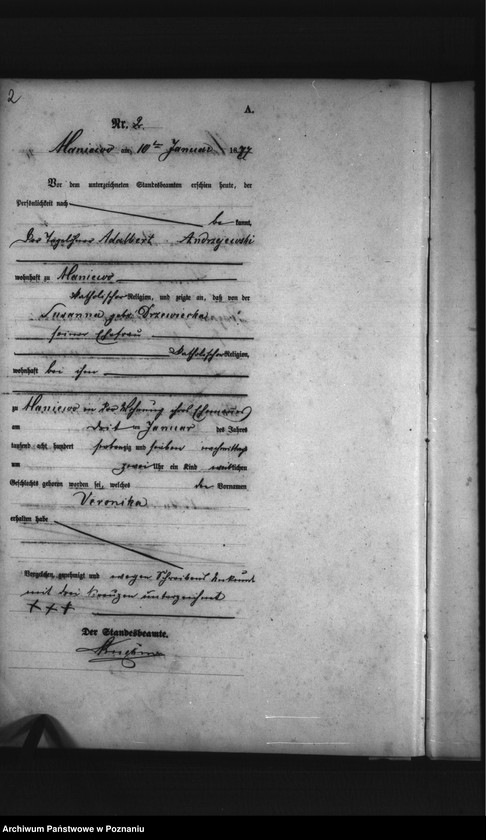 2
A.
Nr. 2.
Maniewo am 10ten Januar 1877
Vor dem unterzeichneten Standesbeamten erschien heute, der
Persönlichkeit nach
bekannt,
Der Tagelöhner Adalbert Andrzejewski
wohnhaft zu Maniewo
katholischer Religion, und zeigte an, daß von der
Susanna geb. Drzewiecka
seiner Ehefrau
katholischer Religion,
wohnhaft bei ihm
zu Maniewo in der Wohnung des Ehemannes
am dritten Januar des Jahres
tausend acht hundert siebenzig und sieben nachmittags
um zwei Uhr ein Kind weiblichen
Geschlechts geboren worden sei, welches den Vornamen
Veronika
erhalten habe
Vorgelesen, genehmigt und wegen Schreibens Unkunde
mit drei Kreuzen unterzeichnet
+ + +
Der Standesbeamte.
Archiwum Państwowe w Poznaniu